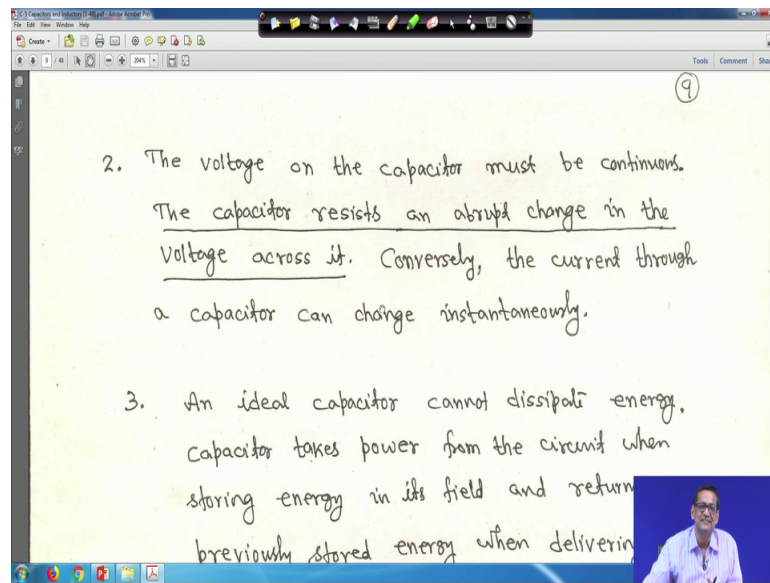 C-5 Capacitors and Inductors [1-48].pdf - Adobe Acrobat Pro
File Edit View Window Help
Create
9 / 48 204% Tools Comment
9
2. The voltage on the capacitor must be continuous.
The capacitor resists an abrupt change in the
voltage across it. Conversely, the current through
a capacitor can change instantaneously.
3. An ideal capacitor cannot dissipate energy.
capacitor takes power from the circuit when
storing energy in its field and return
previously stored energy when deliverin